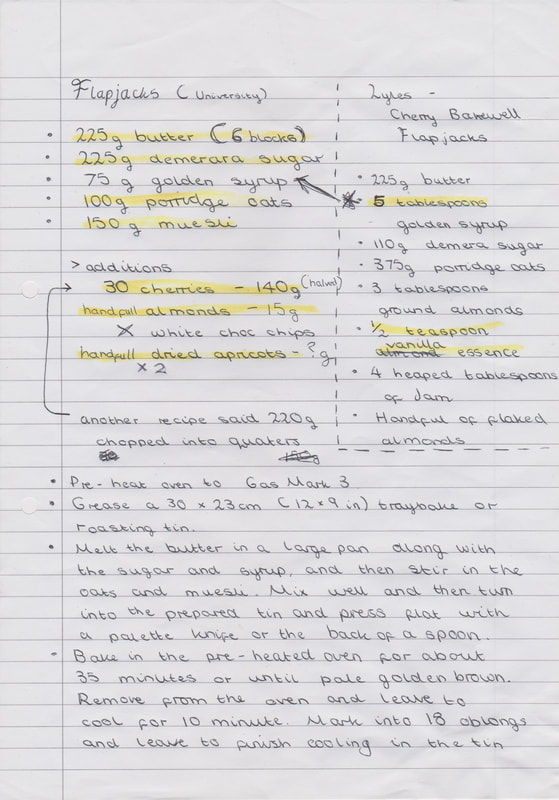 Flapjacks ( University)
• 225g butter ( 6 blocks)
• 225g demerara sugar
• 75g golden syrup
• 100g porridge oats
• 150g muesli
> additions
30 cherries - 140g (halved)
handfull almonds - 15g
X white choc chips
handfull dried apricots - ? g
x 2
another recipe said 220g
chopped into quaters
Lyles -
Cherry Bakewell
Flapjacks
• 225g butter
* 5 tablespoons
golden syrup
• 110g demera sugar
• 375g porridge oats
• 3 tablespoons
ground almonds
• ½ teaspoon
vanilla
almond essence
• 4 heaped tablespoons
of Jam
• Handful of flaked
almonds
• Pre-heat oven to Gas Mark 3
• Grease a 30 x 23cm (12 x 9 in) traybake or
roasting tin.
• Melt the butter in a large pan along with
the sugar and syrup, and then stir in the
oats and muesli. Mix well and then turn
into the prepared tin and press flat with
a palette knife or the back of a spoon.
• Bake in the pre-heated oven for about
35 minutes or until pale golden brown.
Remove from the oven and leave to
cool for 10 minute. Mark into 18 oblongs
and leave to finish cooling in the tin